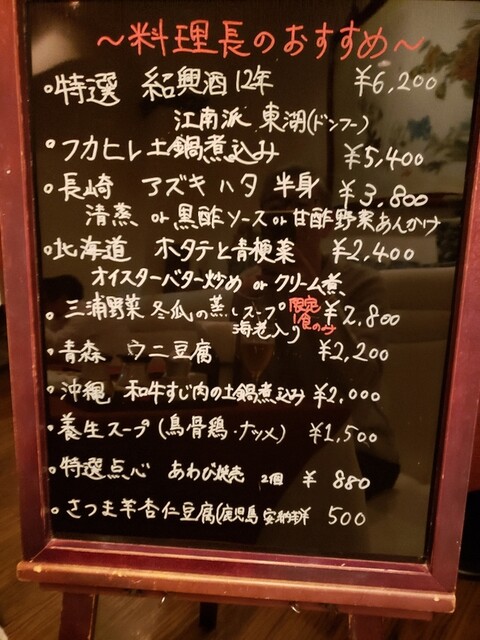 ～料理長のおすすめ～
・特選 紹興酒12年 ¥6,200
江南派 東湖(ドンフー)
・フカヒレ土鍋煮込み ¥5,400
・長崎 アズキハタ 半身 ¥3,800
清蒸 or 黒酢ソース or 甘酢野菜あんかけ
・北海道 ホタテと青梗菜 ¥2,400
オイスターバター炒め or クリーム煮
・三浦野菜 冬瓜の蒸しスープ 限定 ¥2,800
海老入り 1食のみ
・青森 ウニ豆腐 ¥2,200
・沖縄 和牛すじ肉の土鍋煮込み ¥2,000
・養生スープ(烏骨鶏・ナツメ) ¥1,500
・特選点心 あわび焼売 2個 ¥880
・さつま芋杏仁豆腐(鹿児島 500